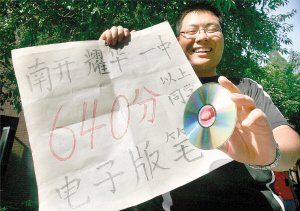 南开 耀华 一中
640分 以上
同学
电子版 笔